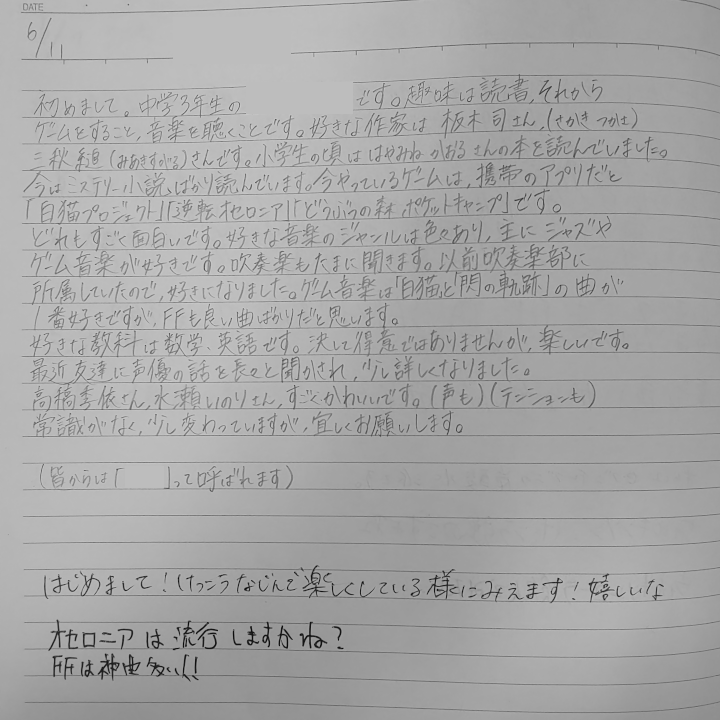 DATE
6/11
初めまして。中学3年生の です。趣味は読書、それから
ゲームをすること、音楽を聴くことです。好きな作家は 板木 司さん、(さかき つかさ)
三秋 縋(みあきすがる)さんです。小学生の頃は はやみね かおる さんの本を読んでいました。
今はミステリー小説ばかり読んでいます。今やっているゲームは、携帯のアプリだと
「白猫プロジェクト」「逆転オセロニア」「どうぶつの森 ポケットキャンプ」です。
どれもすごく面白いです。好きな音楽のジャンルは色々あり、主にジャズや
ゲーム音楽が好きです。吹奏楽もたまに聞きます。以前吹奏楽部に
所属していたので、好きになりました。ゲーム音楽は「白猫」と「閃の軌跡」の曲が
1番好きですが、FFも良い曲ばかりだと思います。
好きな教科は数学、英語です。決して得意ではありませんが、楽しいです。
最近友達に声優の話を長々と聞かされ、少し詳しくなりました。
高橋李依さん、水瀬いのりさん、すごくかわいいです。(声も)(テンションも)
常識がなく、少し変わっていますが、宜しくお願いします。
(皆からは「 」って呼ばれます)
はじめまして!けっこうなじんで楽しくしている様にみえます!嬉しいな
オセロニアは流行しますかね?
FFは神曲多い!!